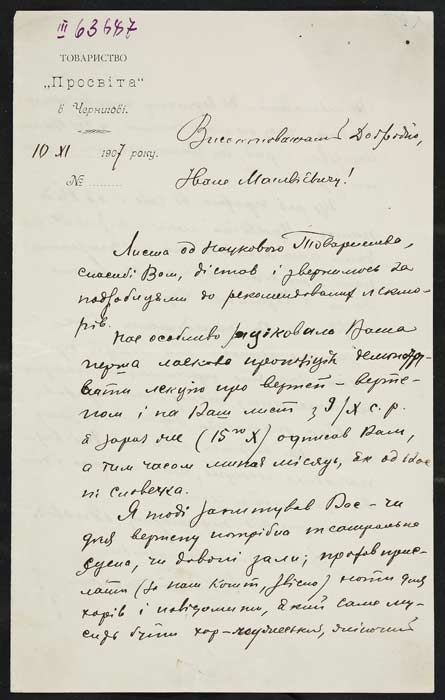 III 63687
ТОВАРИСТВО
„Просвіта“
в Чернигові.
10 XI 1907 року.
№
Високоповажаний Добродію,
Іване Матвієвичу!
Листа од Наукового Товариства,
спасибі Вам, дістав і звернемось за
подробицями до рекомендованих лекто-
рів.
Нас особливо Ваша
перша ласкава пропозиція демонстру-
вати лекцію про вертеп – верте-
пом і на Ваш лист з 9/X с. р.
я зараз же (15го X) одписав Вам,
а тим часом минає місяць, як од Вас
ні словечка.
Я тоді запитував Вас – чи
для вертепу потрібна театральна
сцена, чи доволі зали; прохав прис-
лати (за наш кошт, звісно) ноти для
хорів і повідомити, який саме му-
сить бути хор – мужеський, жіночий